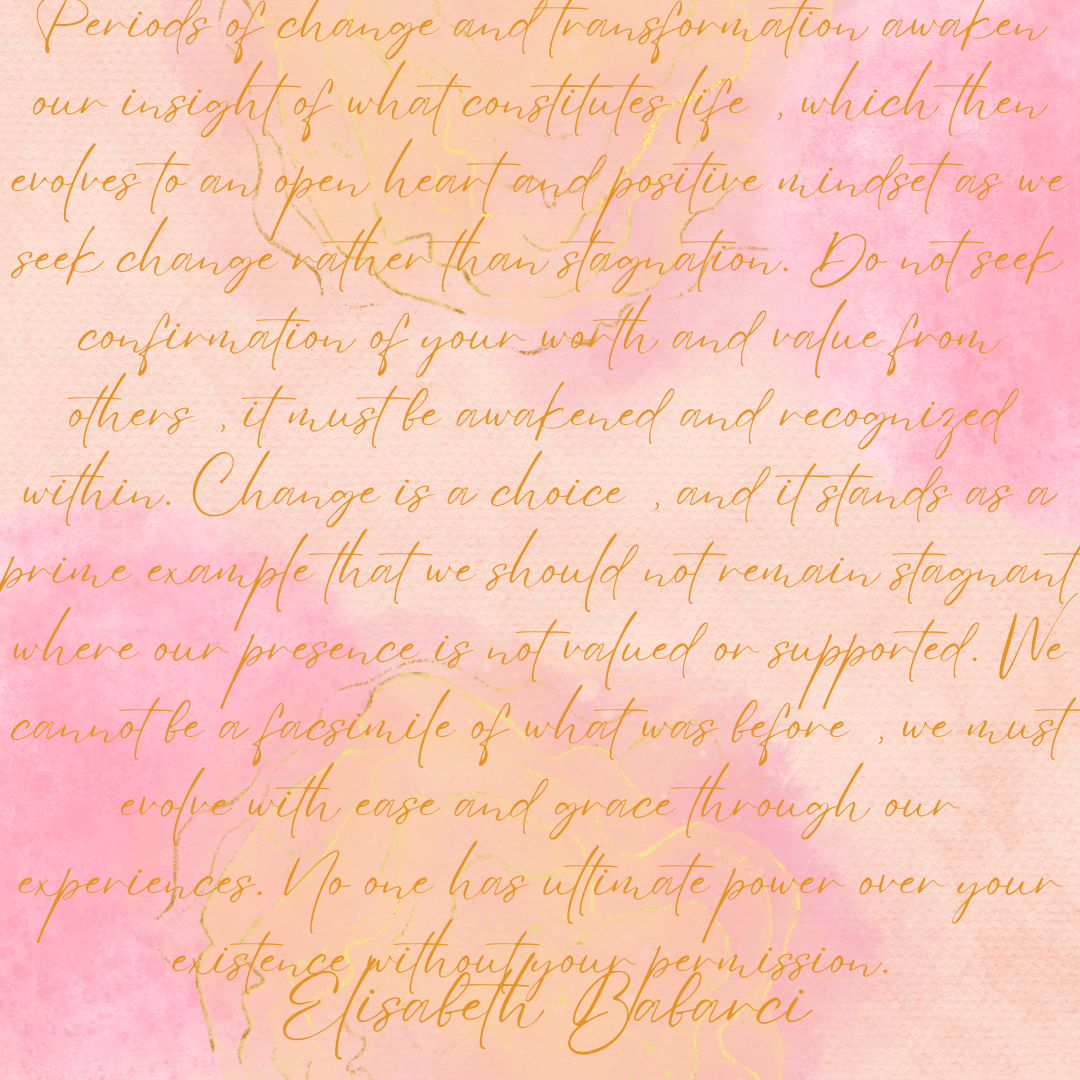 Periods of change and transformation awaken
our insight of what constitutes life , which then
evolves to an open heart and positive mindset as we
seek change rather than stagnation. Do not seek
confirmation of your worth and value from
others , it must be awakened and recognized
within. Change is a choice , and it stands as a
prime example that we should not remain stagnant
where our presence is not valued or supported. We
cannot be a facsimile of what was before , we must
evolve with ease and grace through our
experiences. No one has ultimate power over your
existence without your permission.
Elisabeth Babarci